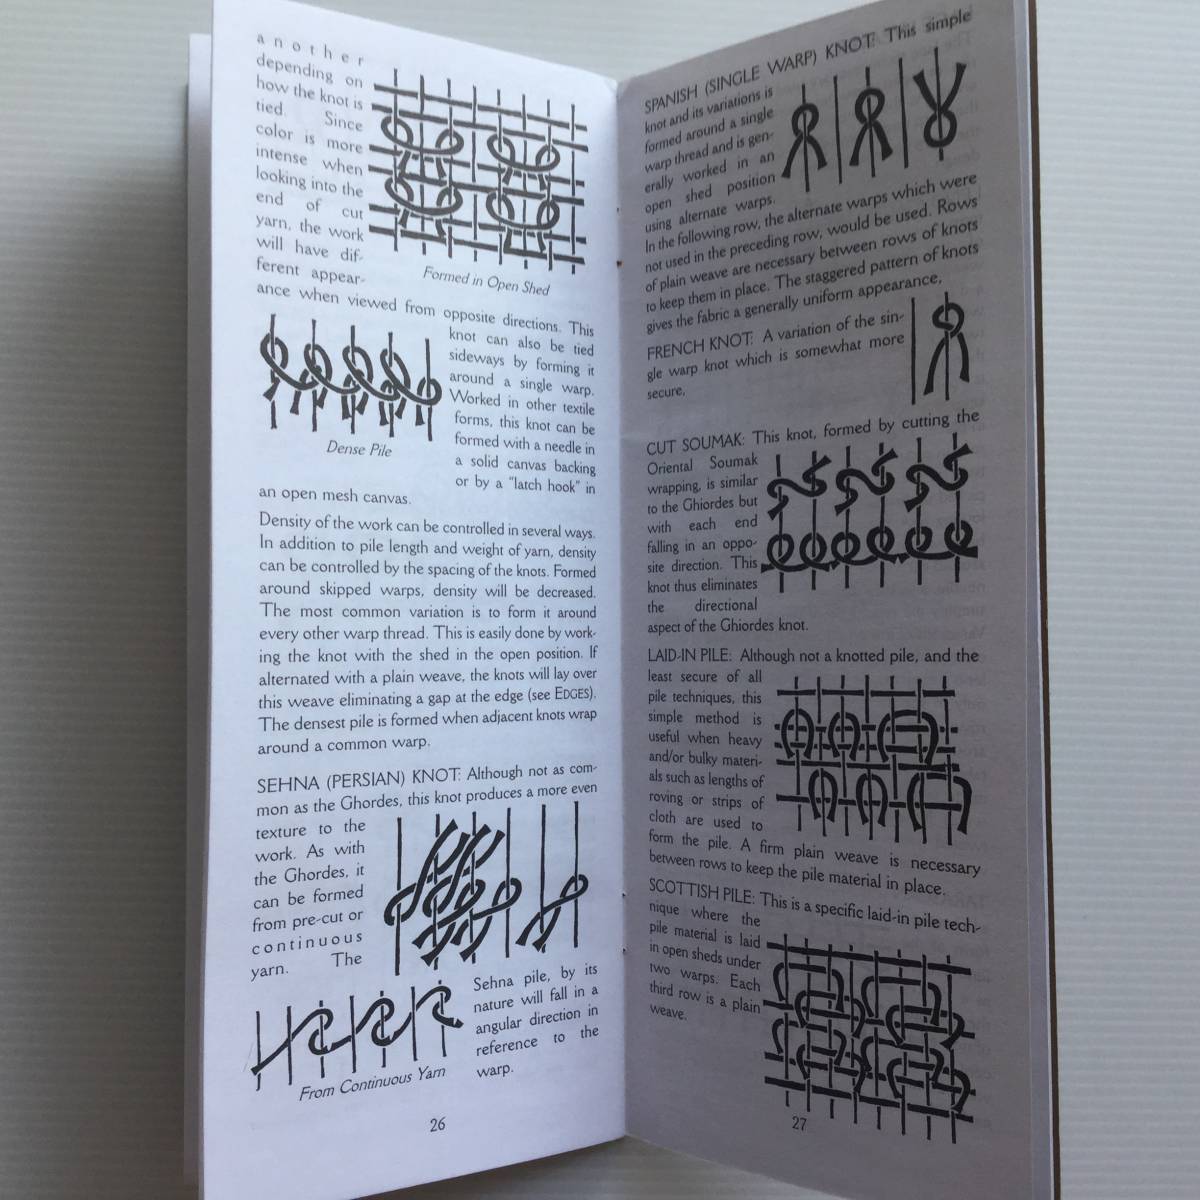 another
depending on
how the knot is
tied. Since
color is more
intense when
looking into the
end of cut
yarn, the work
will have dif-
ferent appear-
Formed in Open Shed
ance when viewed from opposite directions. This
knot can also be tied
sideways by forming it
around a single warp.
Worked in other textile
forms, this knot can be
formed with a needle in
a solid canvas backing
or by a "latch hook" in
Dense Pile
an open mesh canvas.
Density of the work can be controlled in several ways.
In addition to pile length and weight of yarn, density
can be controlled by the spacing of the knots. Formed
around skipped warps, density will be decreased.
The most common variation is to form it around
every other warp thread. This is easily done by work-
ing the knot with the shed in the open position. If
alternated with a plain weave, the knots will lay over
this weave eliminating a gap at the edge (see EDGES).
The densest pile is formed when adjacent knots wrap
around a common warp.
SEHNA (PERSIAN) KNOT: Although not as com-
mon as the Ghordes, this knot produces a more even
texture to the
work. As with
the Ghordes, it
can be formed
from pre-cut or
continuous
yarn. The
Sehna pile, by its
nature will fall in a
angular direction in
reference to the
warp.
From Continuous Yarn
26
SPANISH (SINGLE WARP) KNOT: This simple
knot and its variations is
formed around a single
warp thread and is gen-
erally worked in an
open shed position
using alternate warps.
In the following row, the alternate warps which were
not used in the preceding row, would be used. Rows
of plain weave are necessary between rows of knots
to keep them in place. The staggered pattern of knots
gives the fabric a generally uniform appearance.
FRENCH KNOT: A variation of the sin-
gle warp knot which is somewhat more
secure.
CUT SOUMAK: This knot, formed by cutting the
Oriental Soumak
wrapping, is similar
to the Ghiordes but
with each end
falling in an oppo-
site direction. This
knot thus eliminates
the directional
aspect of the Ghiordes knot.
LAID-IN PILE: Although not a knotted pile, and the
least secure of all
pile techniques, this
simple method is
useful when heavy
and/or bulky materi-
als such as lengths of
roving or strips of
cloth are used to
form the pile. A firm plain weave is necessary
between rows to keep the pile material in place.
SCOTTISH PILE: This is a specific laid-in pile tech-
nique where the
pile material is laid
in open sheds under
two warps. Each
third row is a plain
weave.
27